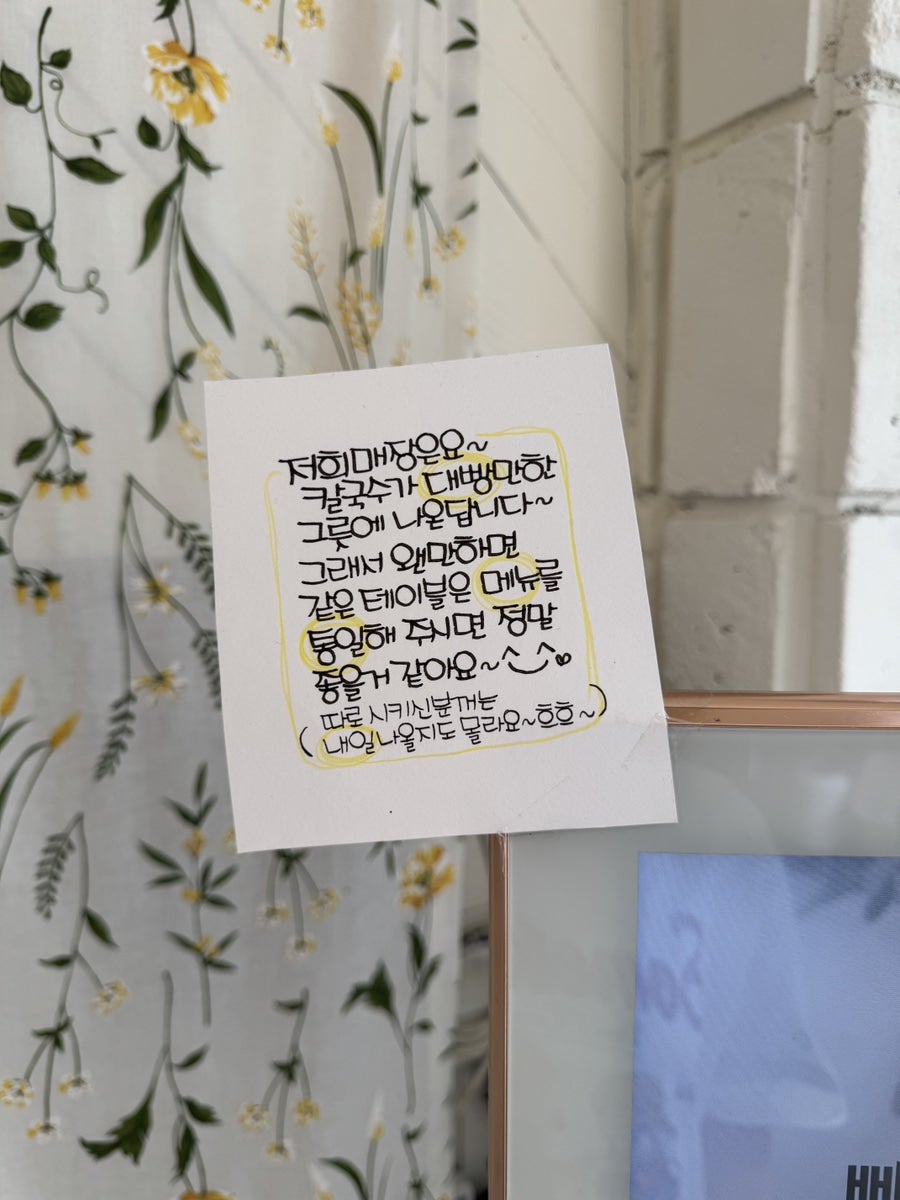 저희매장은요~
칼국수가 대빵만한
그릇에 나온답니다~
그래서 왠만하면
같은 테이블은 메뉴를
통일해 주시면 정말
좋을거 같아요~^‿^♡
따로 시키신분께는
(내일나올지도 몰라요~흐흐~)
HH